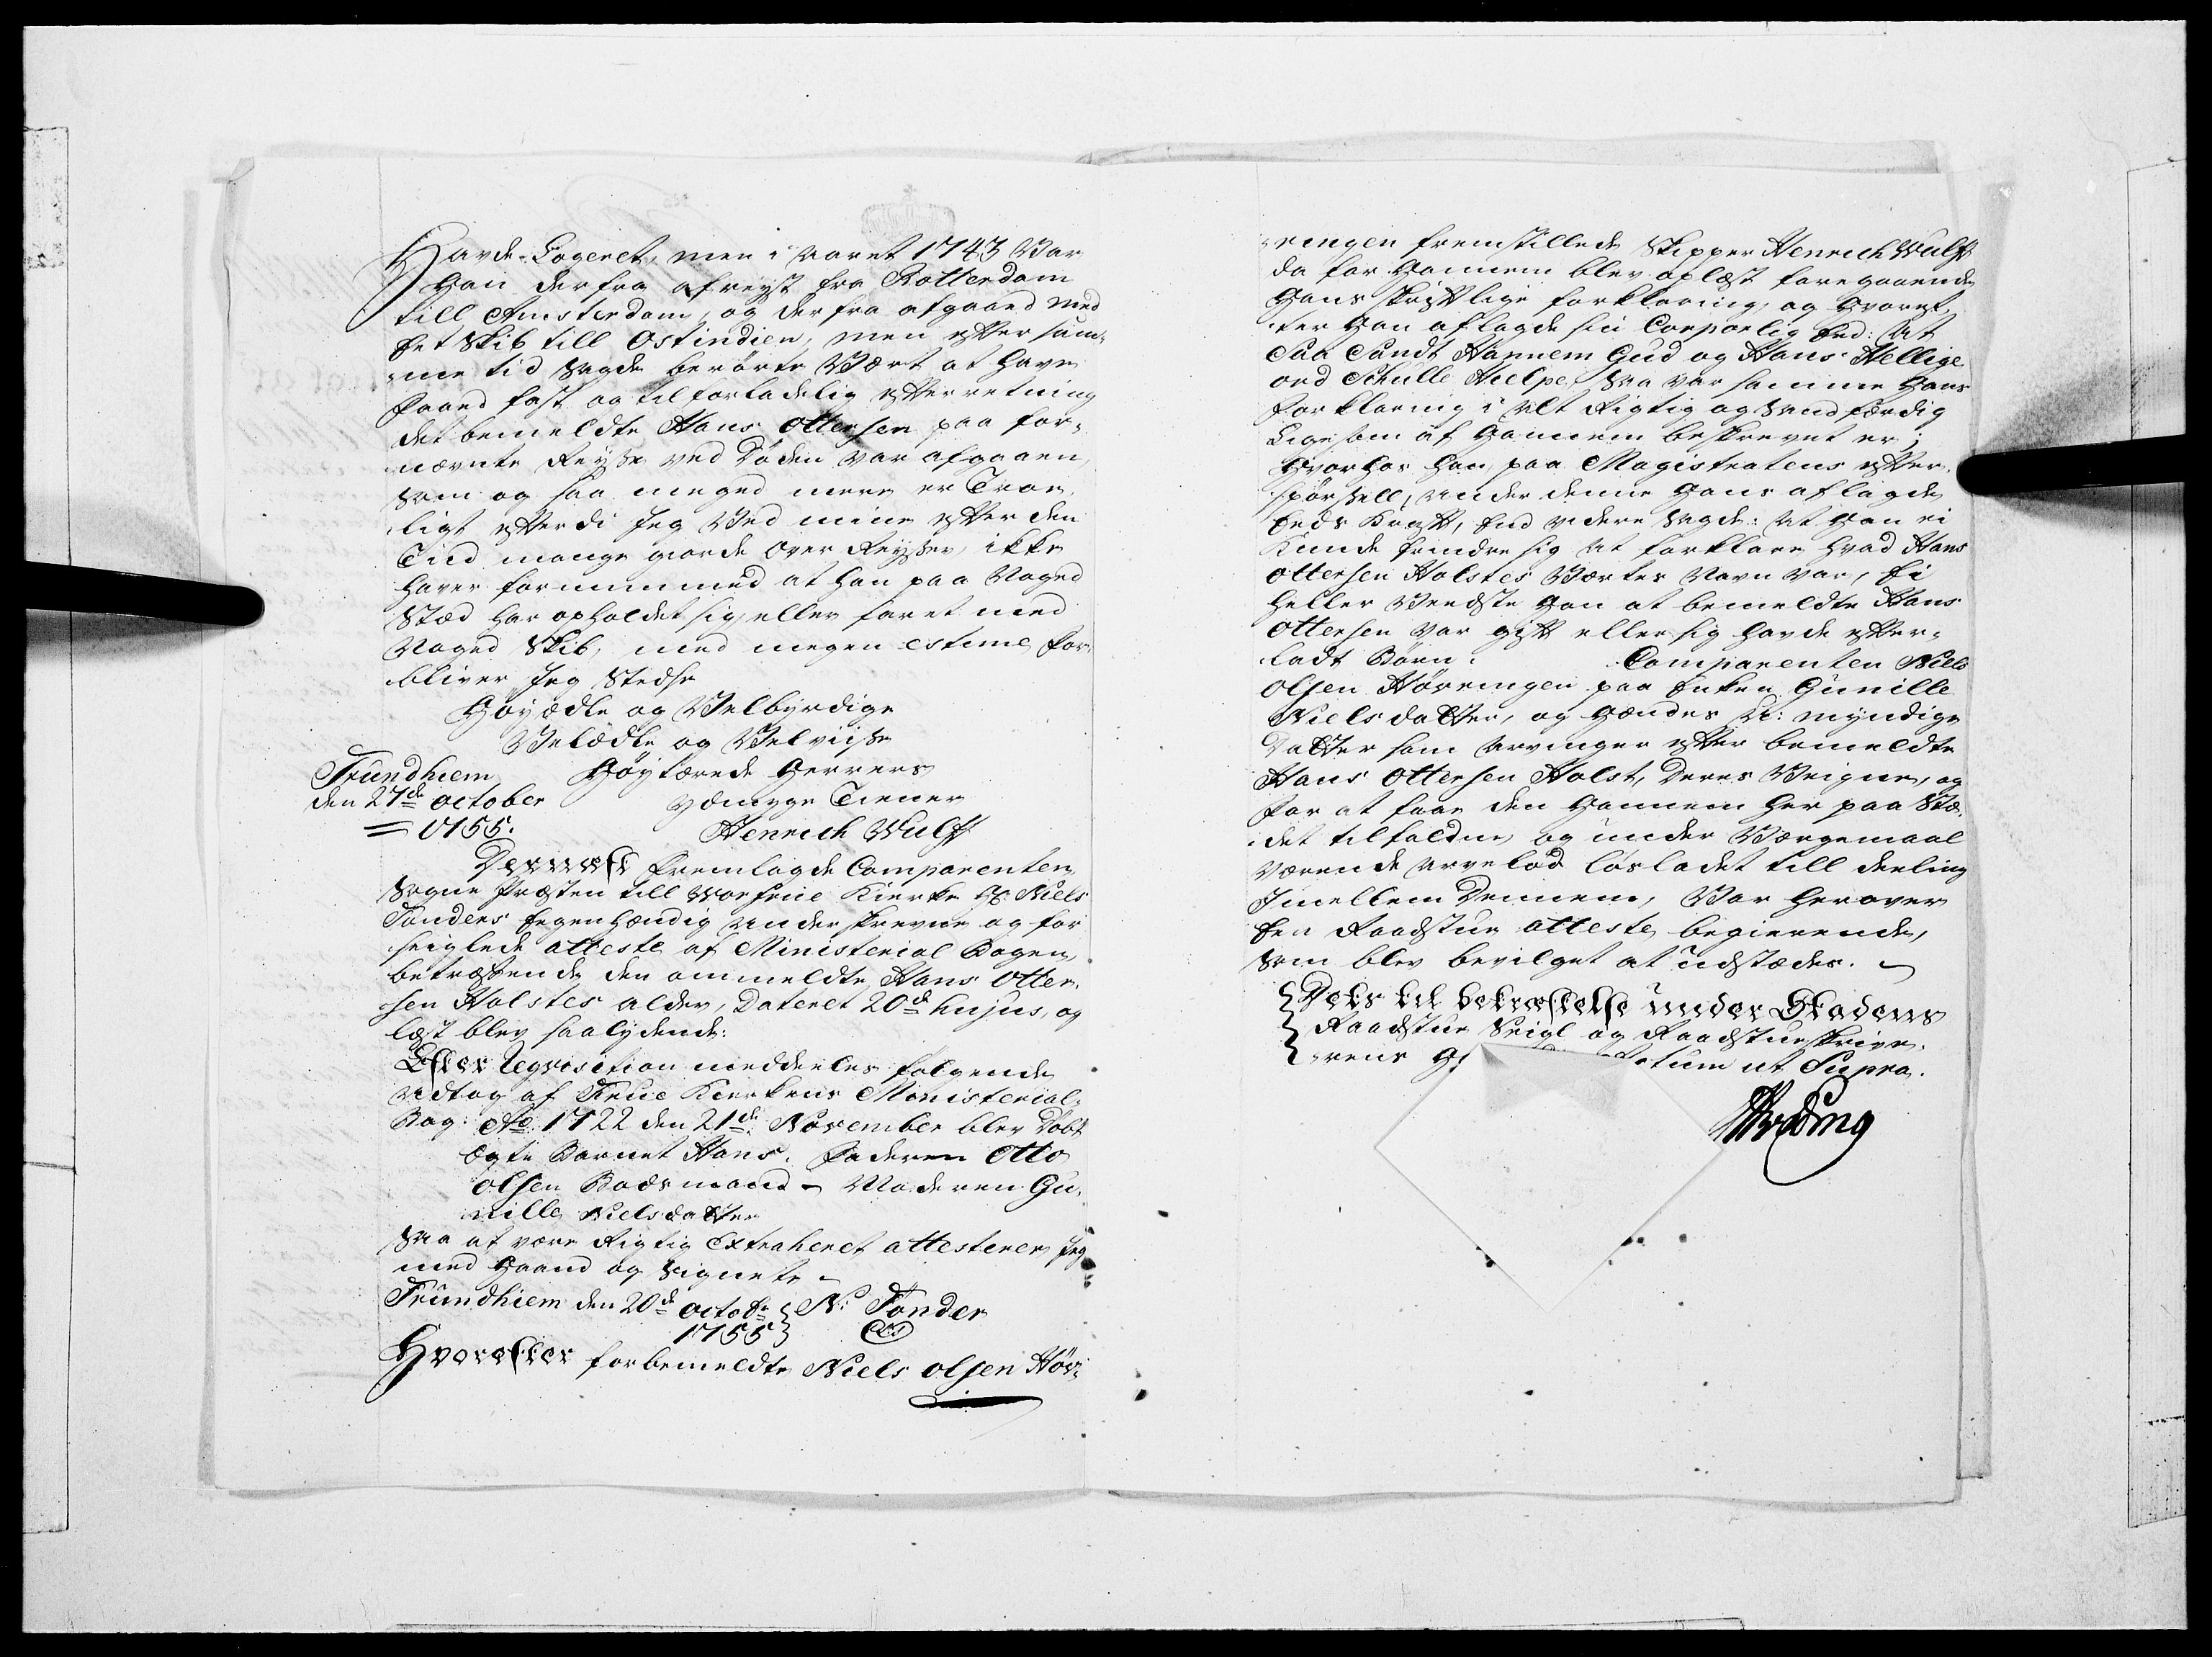 Havde Logeret, men i aaret 1743 Var
Han derfra afreyst fra Rotterdam
till Amsterdam, og derfra afgaaed med
Et Skib till Ostindien, men efter sam¬
me tid sagde berørte Vært at have
Faaed fast og tilforladelig efterretning
det bemeldte Hans Ottersen paa for¬
nævnte Reyse ved Døden var afgaaen,
som og saa meged mere er Troe¬
ligt efterdi Jeg Ved mine efter den
Tiid mange giorde Over Reyser, ikke
haver fornummed at han paa Noged
Stæd har opholdet sig eller faret med
Noged Skib, med megen estime for¬
bliver Jeg Stedse
Høyædle og Velbyrdige
Velædle og Velviise
Trundhiem Høylærede Herrers
den 27de October ydmyge Tiener
1755. Henrich Wulff
Dernæst fremlagde Comparenten
Sogne Præsten till Vor Frue Kierke Hr. Niels
Tonders Egenhændig underskrevne og for
seiglede atteste af Ministerial Bogen,
betræffende den ommeldte Hans Otter¬
sen Holstes alder, Dateret 20de hujus, og
læst blev saalydende:
Efter Reqvisition meddeeles følgende
Udtog af Frue Kierkens Ministerial¬
Bog: Ao 1722 den 21de November blev Døbt
Ægte Barnet Hans. Faderen Otto
Olsen Baadsmand - Moderen Gu¬
nille Nielsdatter
Saa at være Rigtig Extraheret attesterer Jeg
med Haand og Signete
Trundhiem den 20de Octobr N: Tonder
1755
Hvorefter forbemeldte Niels Olsen Høv¬
ringen fremstillede Skipper Henrich Wulff
da for Hannem blev oplæst foregaaende
Hans skriftlige forklaring, og Hvoref¬
ter Han aflagde sin Corporlig Eed: At
Saa Sandt Hannem Gud og Hans Hellige
ord Schulle Hielpe, Saa var samme Hans
forklaring i Alt Rigtig og Sandfærdig
Ligesom af Hannem beskrevet er;
Hvorhos Han, paa Magistratens efter¬
spørsell, under denne Hans aflagde
Eeds Kraft, End videre sagde: At Han ei
Kunde Erindre sig At forklare Hvad Hans
Ottersen Holstes Værtes Navn var, Ei
heller Vendste Han at bemeldte Hans
Ottersen var gift eller sig Havde efter¬
ladt Børn. Comparenten Niels
Olsen Høvringen paa Enken Gunille
Nielsdatter, og Hændes myndige
Datter som Arvinger efter bemeldte
Hans Ottersen Holst, Deres Veigne, og
for at faae den Hannem Her paa Stæ¬
det tilfaldne og under Værgemaal
værende Arvelod løsladet till deeling
Imellem Dennem, Var Herover
Een Raadstue atteste begierende,
som blev bevilget at Udstædes.
Dets til bekræftelse under Stadens
Raadstue Seigl og Raadstueskrive¬
rens ut Supra.